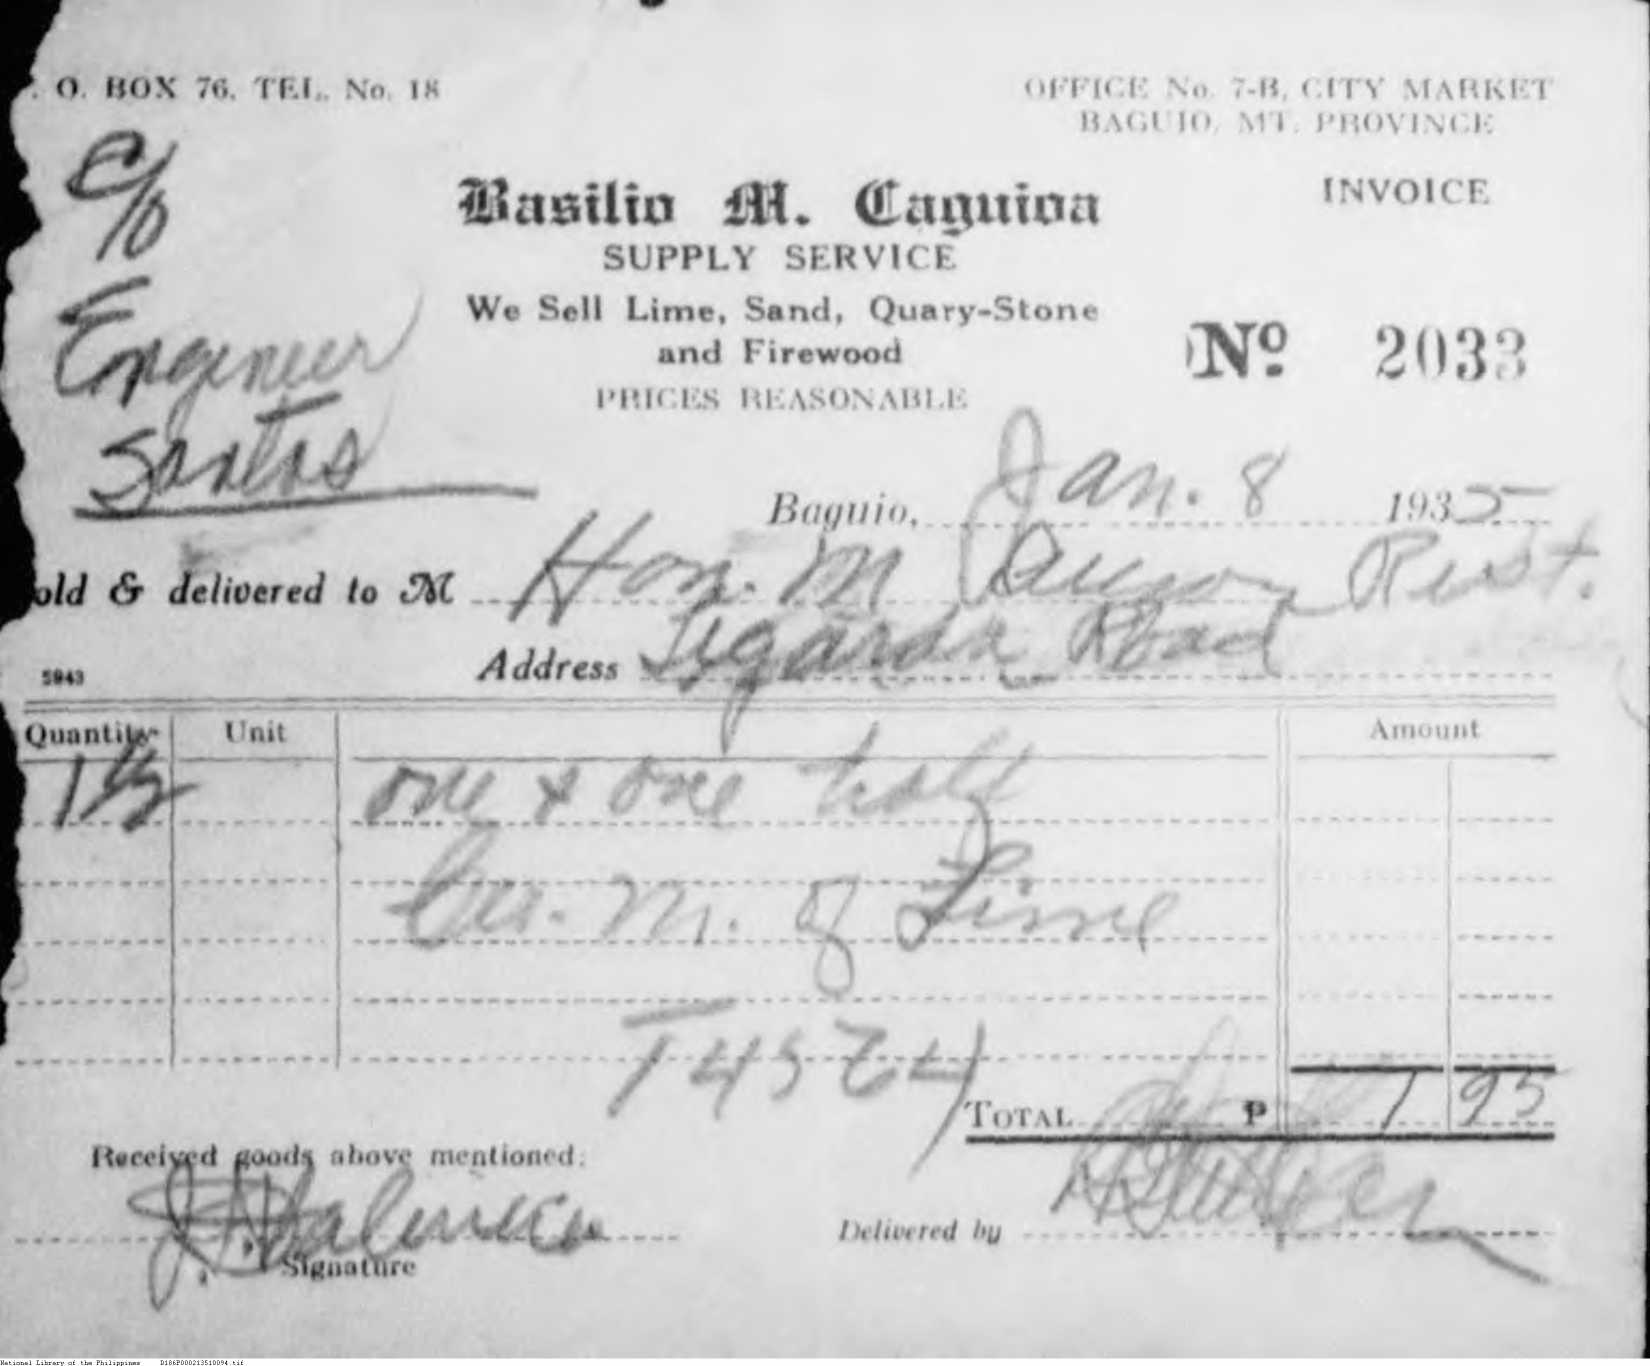 . O. BOX 76. TEL. No. 18
OFFICE No. 7-B, CITY MARKET
BAGUIO, MT. PROVINCE
c/o
Engineer
Santos
Basilio M. Caguioa
INVOICE
SUPPLY SERVICE
We Sell Lime, Sand, Quary-Stone
and Firewood
PRICES REASONABLE
Nº 2033
Baguio, Jan. 8 1935
old & delivered to M Hon. M
Address Road
5943
Quantity Unit Amount
1½ one & one half
Cu. M. of Lime
T4524
TOTAL P 1 95
Received goods above mentioned:
Delivered by
Signature
National Library of the Philippines D186P000213510094.tif